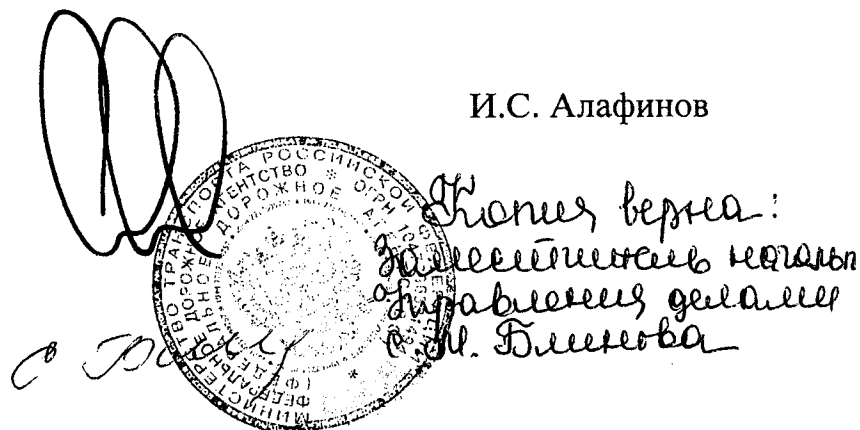 И.С. Алафинов
Копия верна:
Заместитель началь
Управления делами
С.М. Блинова
МИНИСТЕРСТВО ТРАНСПОРТА РОССИЙСКОЙ
ФЕДЕРАЛЬНОЕ ДОРОЖНОЕ АГЕНТСТВО * ОГРН
ДОРОЖНОЕ